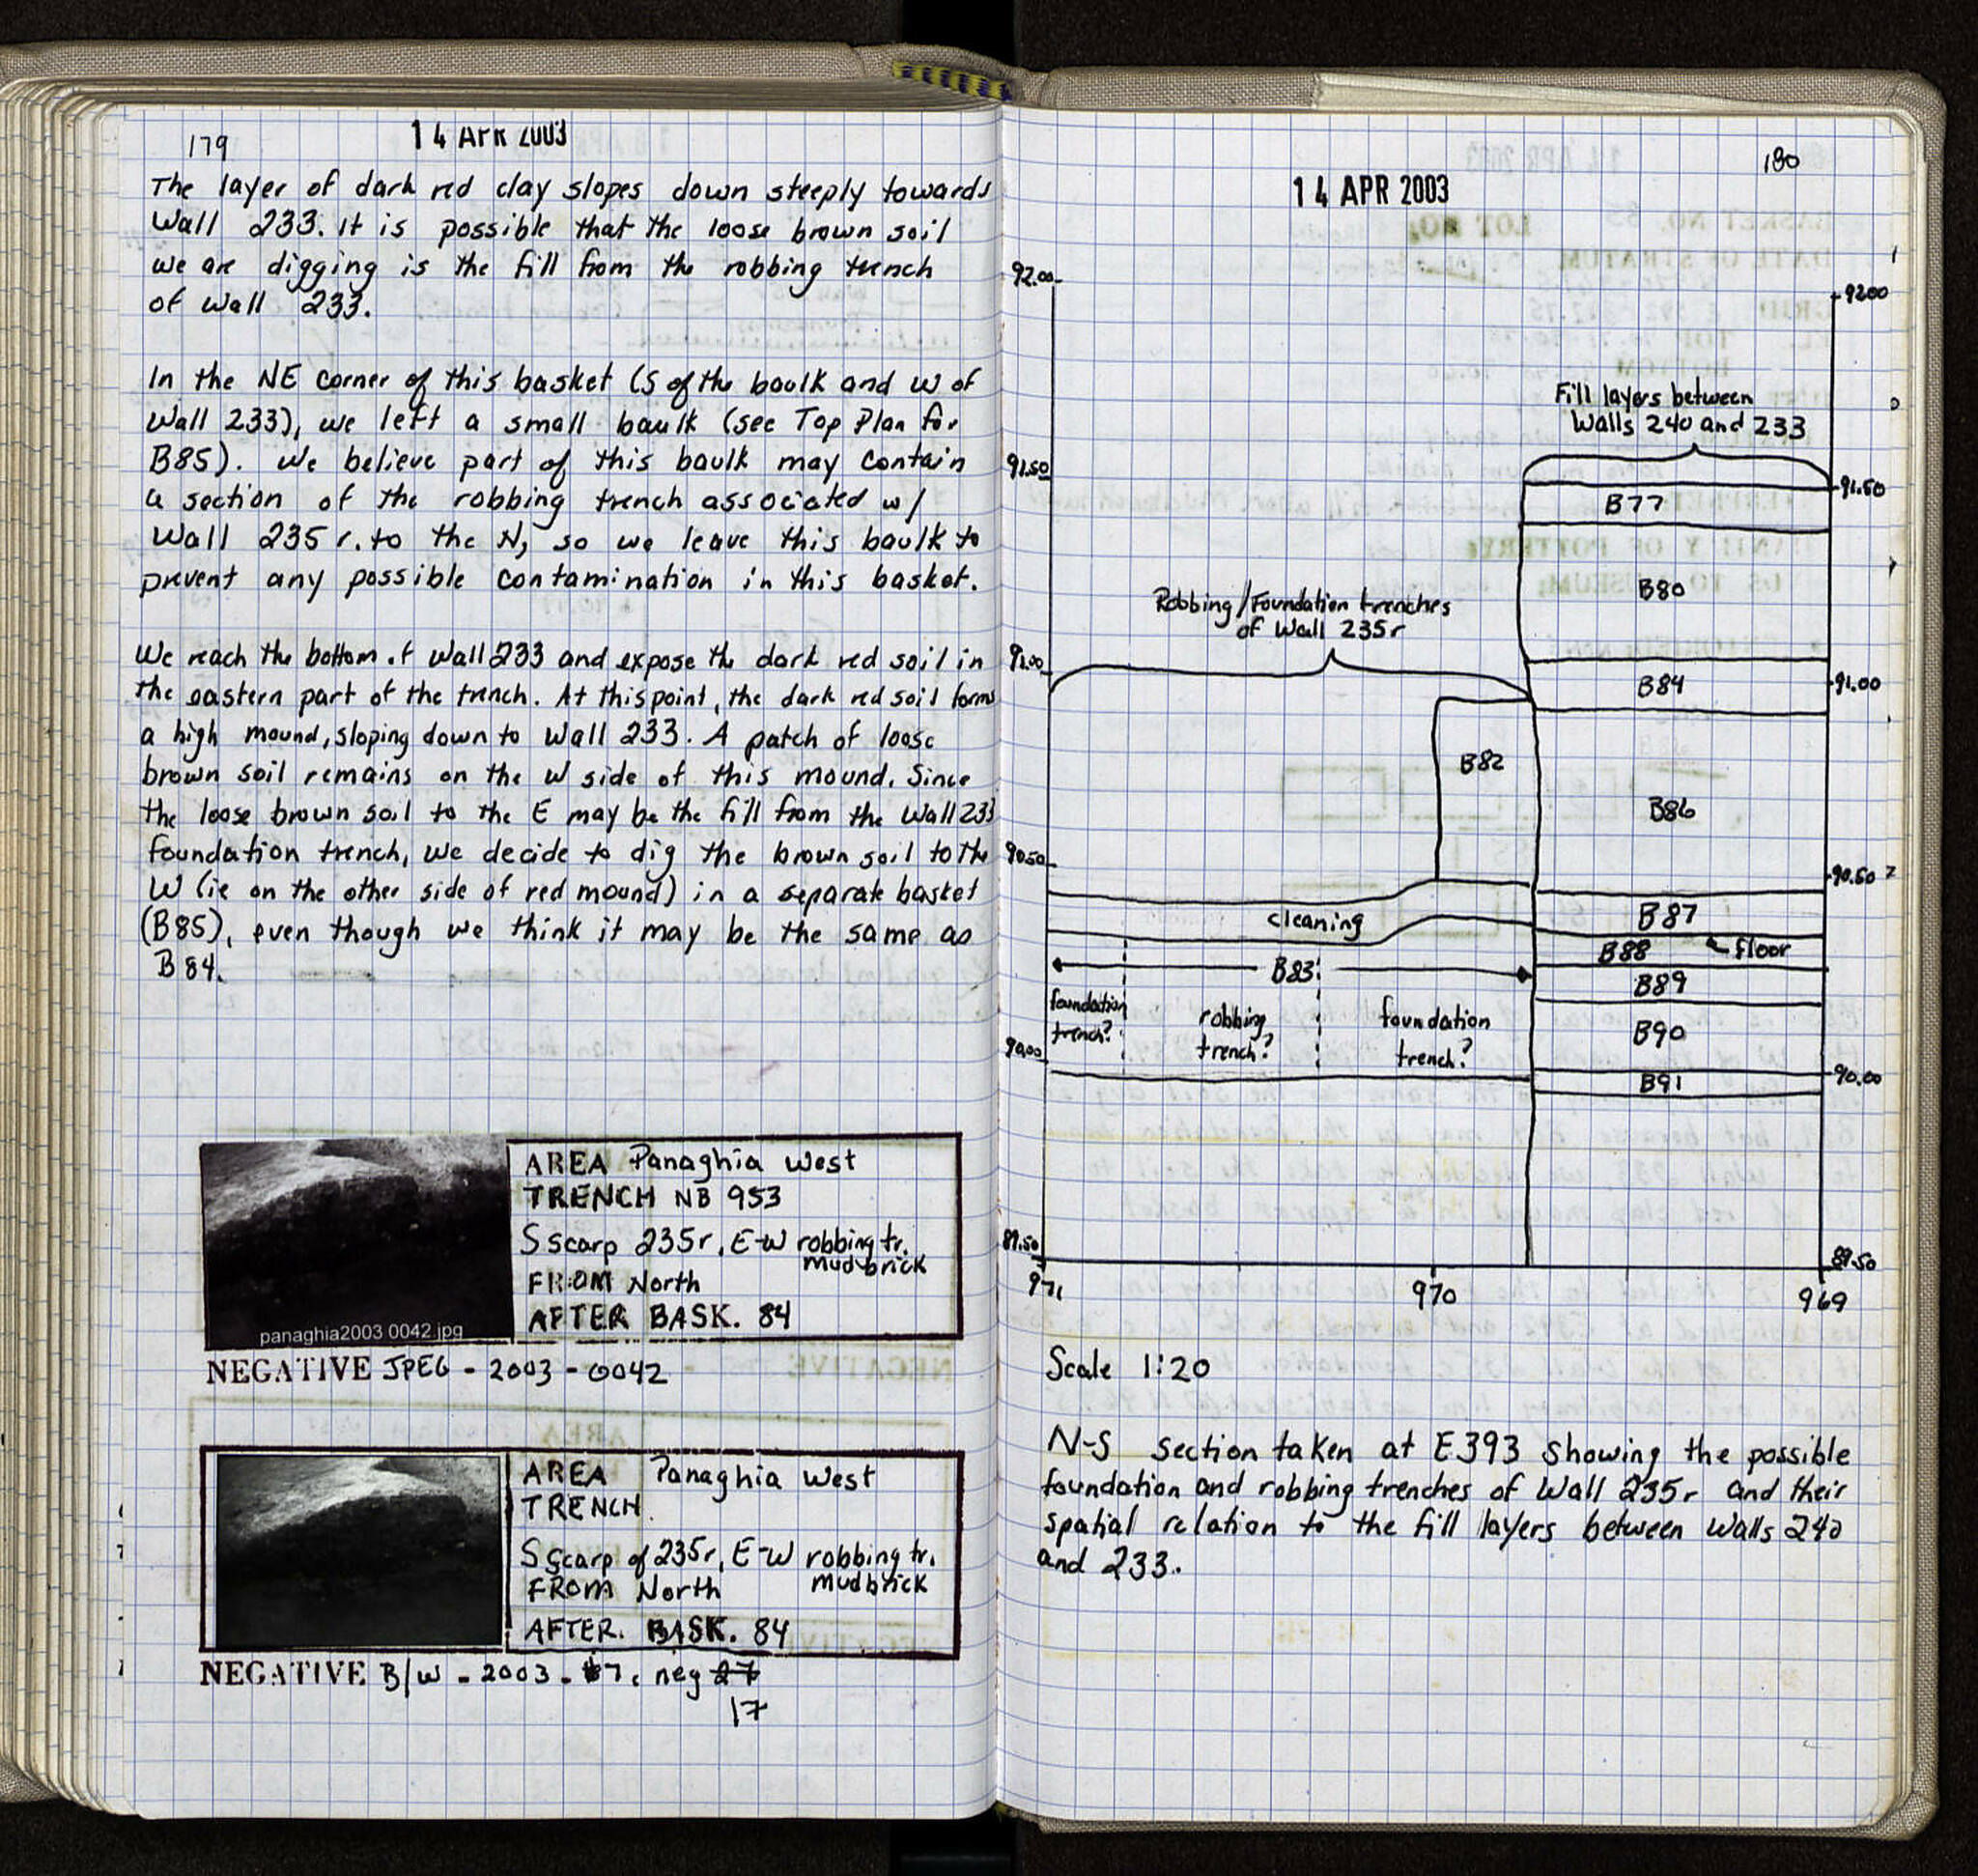 179
14 APR 2003
The layer of dark red clay slopes down steeply towards
Wall 233. It is possible that the loose brown soil
we are digging is the fill from the robbing trench
of Wall 233.
In the NE corner of this basket (S of the baulk and W of
Wall 233), we left a small baulk (see Top Plan for
B85). We believe part of this baulk may contain
a section of the robbing trench associated w/
Wall 235 r. to the N, so we leave this baulk to
prevent any possible contamination in this basket.
We reach the bottom of Wall 233 and expose the dark red soil in
the eastern part of the trench. At this point, the dark red soil forms
a high mound, sloping down to Wall 233. A patch of loose
brown soil remains on the W side of this mound. Since
the loose brown soil to the E may be the fill from the Wall 233
foundation trench, we decide to dig the brown soil to the
W (ie on the other side of red mound) in a separate basket
(B85), even though we think it may be the same as
B84.
panaghia2003 0042.jpg
AREA Panaghia West
TRENCH NB 953
S scarp 235r, E-W robbing tr.
mudbrick
FROM North
AFTER BASK. 84
NEGATIVE JPEG - 2003 - 0042
AREA Panaghia West
TRENCH
S scarp of 235r, E-W robbing tr.
FROM North mudbrick
AFTER. BASK. 84
NEGATIVE B/W - 2003 - #7, neg 27
17
180
14 APR 2003
92.00
92.00
Fill layers between
Walls 240 and 233
91.50
91.50
B77
B80
Robbing/Foundation trenches
of Wall 235r
91.00
B84
91.00
B82
B86
90.50
90.50
cleaning
B87
B88
floor
B83
B89
foundation
trench?
robbing
trench?
foundation
trench?
B90
90.00
90.00
B91
89.50
89.50
971
970
969
Scale 1:20
N-S section taken at E393 showing the possible
foundation and robbing trenches of Wall 235r and their
spatial relation to the fill layers between Walls 240
and 233.